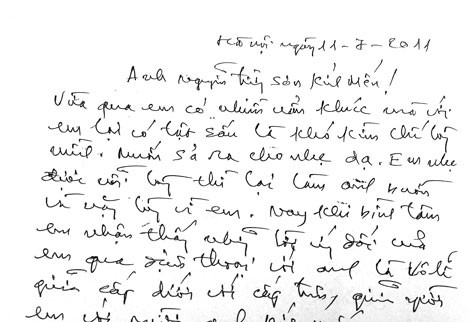 Hà nội ngày 11-7-2011
Anh Nguyễn Thủy Sơn kính mến!
Vừa qua em có nhiều uẩn khúc mà với
em lại có tật xấu là khó kìm chế
mình. Muốn sả ra cho nhẹ dạ. Em nhẹ
được với thì lại làm anh buồn
và vì em. Nay khi bình tâm
em nhận thấy những lời ấy đối với
em qua điện thoại với anh là vô lễ
giữa cấp dưới với cấp trên, giữa người
em với người